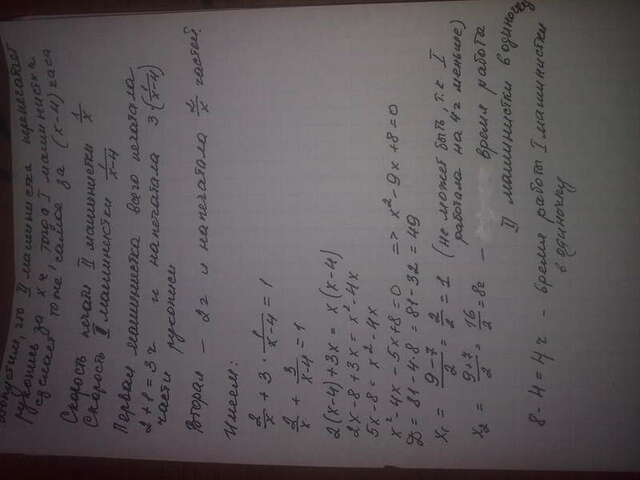 Допустим, что II машинистка перепечатает
рукопись за x ч, тогда I машинистка
сделает то же самое за (x-4) часа
Скорость печати II машинистки 1/x
Скорость II машинистки 1/x-4
Первая машинистка всего печатала
2+ =3ч и напечатала 3(1/x-4)
части рукописи
Вторая - 2ч и напечатала 2/x частей.
Имеем:
2/x + 3 · 1/x-4 = 1
2/x + 3/x-4 = 1
2(x-4)+3x = x(x-4)
2x-8+3x = x²-4x
5x-8 = x²-4x
x²-4x-5x+8=0 => x²-9x+8=0
D = 81-4·8 = 81-32 = 49
x₁ = 9-7/2 = 2/2 = 1 (не может быть, т.к. I
работала на 4ч меньше)
x₂ = 9+7/2 = 16/2 = 8ч - время работы
II машинистки в одиночку
8-4=4ч - время работы I машинистки
в одиночку